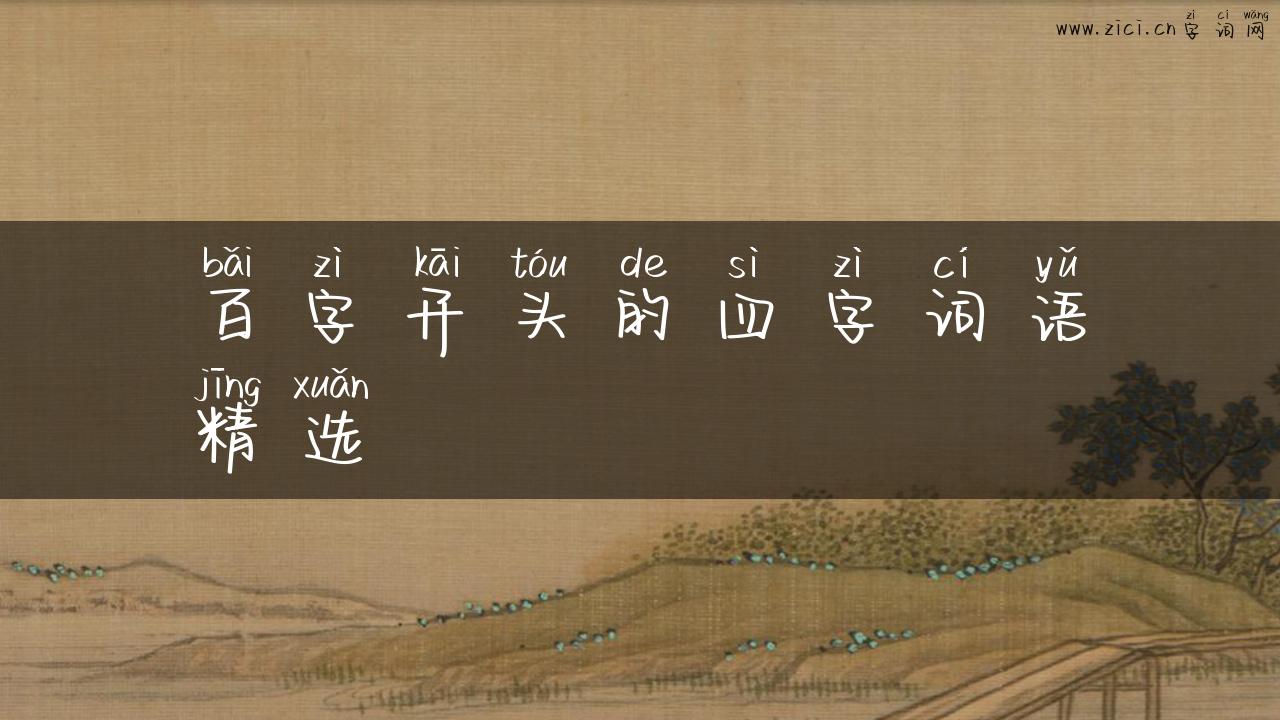 zì cí wǎng
www.zici.cn 字词网
bǎi zì kāi tóu de sì zì cí yǔ
百字开头的四字词语
jīng xuǎn
精选